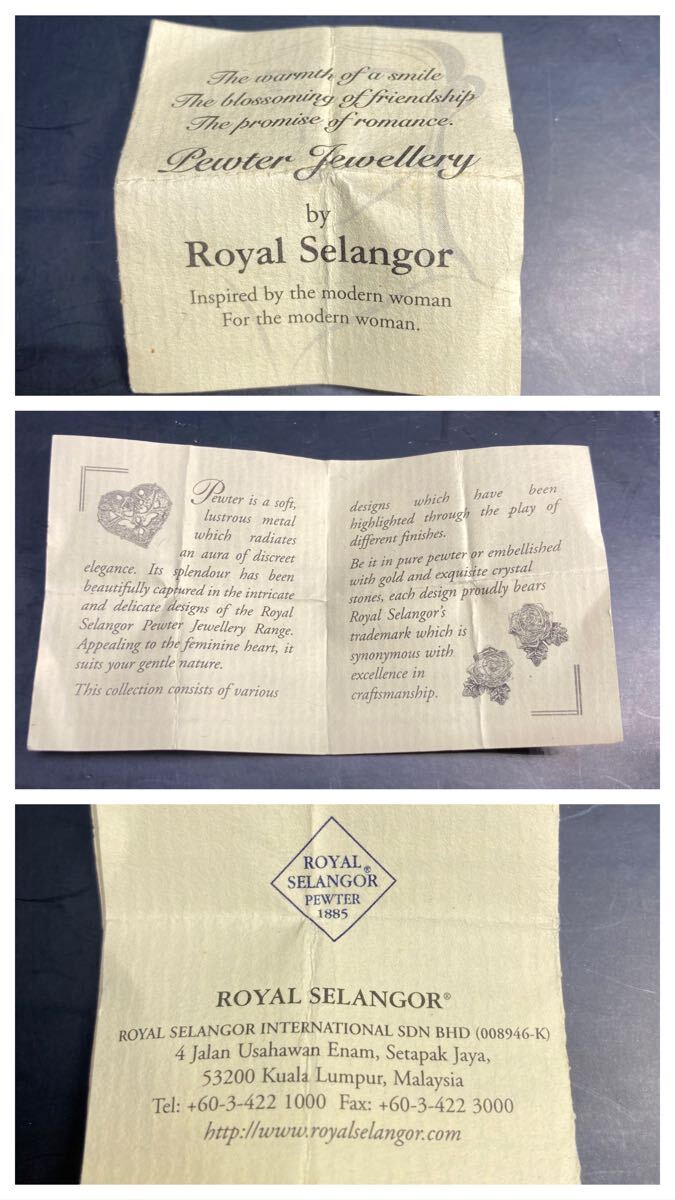 The warmth of a smile
The blossoming of friendship
The promise of romance.
Pewter Jewellery
by
Royal Selangor
Inspired by the modern woman
For the modern woman.
Pewter is a soft,
lustrous metal
which radiates
an aura of discreet
elegance. Its splendour has been
beautifully captured in the intricate
and delicate designs of the Royal
Selangor Pewter Jewellery Range.
Appealing to the feminine heart, it
suits your gentle nature.
This collection consists of various
designs which have been
highlighted through the play of
different finishes.
Be it in pure pewter or embellished
with gold and exquisite crystal
stones, each design proudly bears
Royal Selangor's
trademark which is
synonymous with
excellence in
craftsmanship.
ROYAL
SELANGOR®
PEWTER
1885
ROYAL SELANGOR®
ROYAL SELANGOR INTERNATIONAL SDN BHD (008946-K)
4 Jalan Usahawan Enam, Setapak Jaya,
53200 Kuala Lumpur, Malaysia
Tel: +60-3-422 1000 Fax: +60-3-422 3000
http://www.royalselangor.com